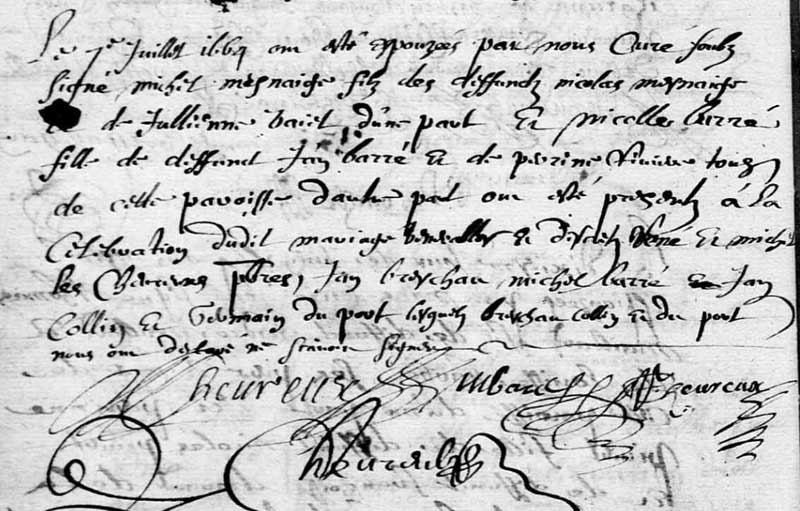 Le 7e Juillet 1664 ont esté espousés par nous Curé soubz
signé michel mesnaige filz des deffunctz nicolas mesnaige
de Jullienne d'une part Et nicolle barré
fille de deffunct Jan barré et de perrine Riviere touz
de cette paroisse d'autre part ont esté presentz à la
Celebration dudit mariage venerables et discretz René et michel
les heureux pbres, Jan breschau michel barré et Jan
Collin et Germain du port lesquelz breschau collin et du port
nous ont declaré ne scavoir signer
heureux mbarré heureux